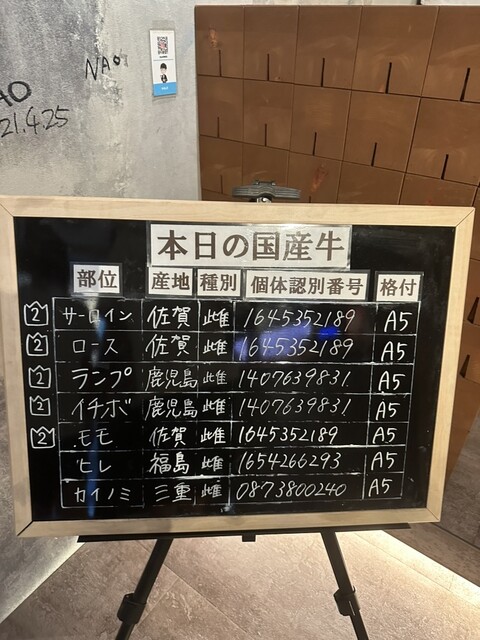 NAO
AO
21.4.25
本日の国産牛
部位 産地 種別 個体認別番号 格付
2 サーロイン 佐賀 雌 1645352189 A5
2 ロース 佐賀 雌 1645352189 A5
2 ランプ 鹿児島 雌 1407639831 A5
2 イチボ 鹿児島 雌 1407639831 A5
2 モモ 佐賀 雌 1645352189 A5
ヒレ 福島 雌 1654266293 A5
カイノミ 三重 雌 0873800240 A5